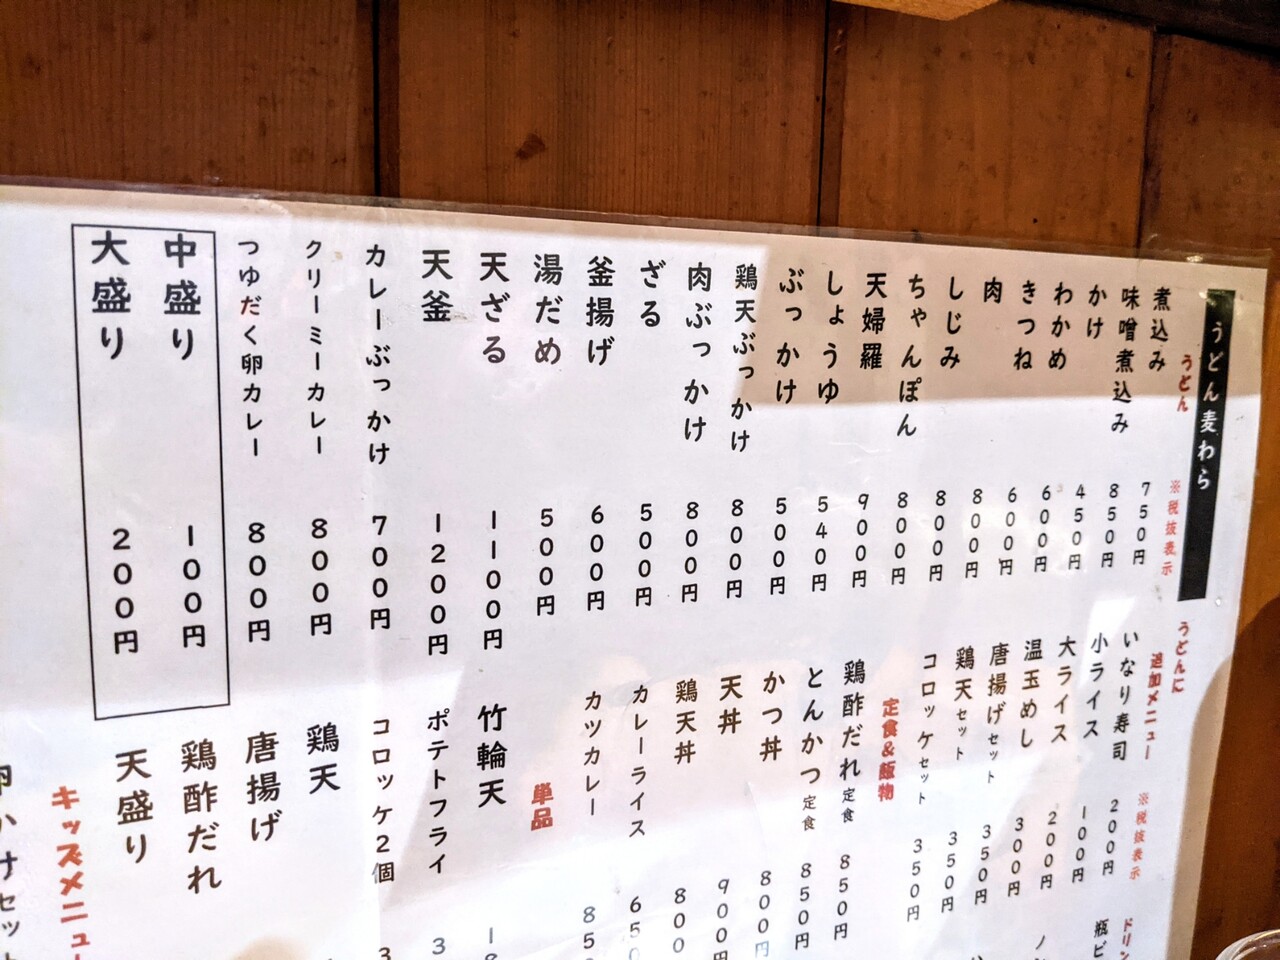 うどん麦わら
うどん ※税抜表示
煮込み 750円
味噌煮込み 850円
かけ 450円
わかめ 600円
きつね 600円
肉 800円
しじみ 800円
ちゃんぽん 800円
天婦羅 900円
しょうゆ 540円
ぶっかけ 500円
鶏天ぶっかけ 800円
肉ぶっかけ 800円
ざる 500円
釜揚げ 600円
湯だめ 500円
天ざる 1100円
天釜 1200円
カレーぶっかけ 700円
クリーミーカレー 800円
つゆだく卵カレー 800円
中盛り 100円
大盛り 200円
うどんに
追加メニュー ※税抜表示
いなり寿司 200円
小ライス 100円
大ライス 200円
温玉めし 300円
唐揚げセット 350円
鶏天セット 350円
コロッケセット 350円
定食&飯物
鶏酢だれ定食 850円
とんかつ定食 850円
かつ丼 800円
天丼 900円
鶏天丼 800
カレーライス 650
カツカレー 85
単品
竹輪天
ポテトフライ
コロッケ2個
鶏天
唐揚げ
鶏酢だれ
天盛り
キッズメニュー